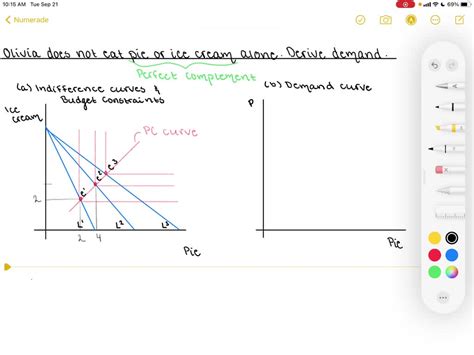 10:15 AM Tue Sep 21
69%
Numerade
Olivia does not eat pie or ice cream alone. Derive demand.
Perfect complement
(a) Indifference curves & Budget Constraints
(b) Demand curve
Ice cream
P
PC curve
e¹
e²
e³
2
L¹
L²
L³
2
4
Pie
Pie